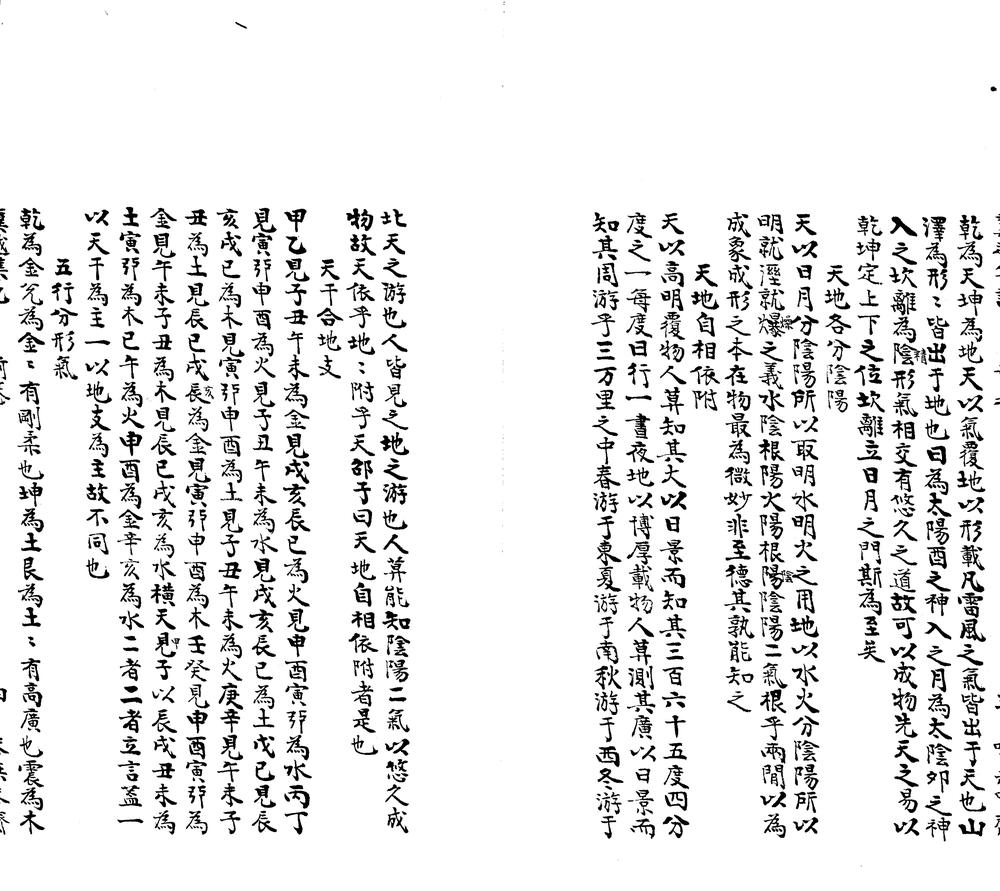 乾為天坤為地天以氣覆地以形載凡雷風之氣皆出于天也山
澤為形〻皆出于地也日為太陽酉之神入之月為太陰卯之神
入之坎離為陰精形氣相交有悠久之道故可以成物先天之易以
乾坤定上下之位坎離立日月之門斯為至矣
天地各分陰陽
天以日月分陰陽所以取明水明火之用地以水火分陰陽所以
明就溼就爆燥之義水陰根陽火陽根陽陰陰陽二氣根乎兩間以為
成象成形之本在物最為微妙非至德其孰能知之
天地自相依附
天以高明覆物人算知其大以日景而知其三百六十五度四分
度之一每度日行一晝夜地以博厚載物人算測其廣以日景而
知其周游乎三万里之中春游于東夏游于南秋游于西冬游于
北天之游也人皆見之地之游也人算能知陰陽二氣以悠久成
物故天依乎地〻附乎天邵子曰天地自相依附者是也
天干合地支
甲乙見子丑午未為金見戌亥辰巳為火見申酉寅卯為水丙丁
見寅卯申酉為火見子丑午未為水見戌亥辰巳為土戊己見辰
亥戌巳為木見寅卯申酉為土見子丑午未為火庚辛見午未子
丑為土見辰巳戌辰亥為金見寅卯申酉為木壬癸見申酉寅卯為
金見午未子丑為木見辰巳戌亥為水橫天見甲子以辰戌丑未為
土寅卯為木巳午為火申酉為金辛亥為水二者二者立言蓋一
以天干為主一以地支為主故不同也
五行分形氣
乾為金兌為金〻有剛柔也坤為土艮為土〻有高廣也震為木